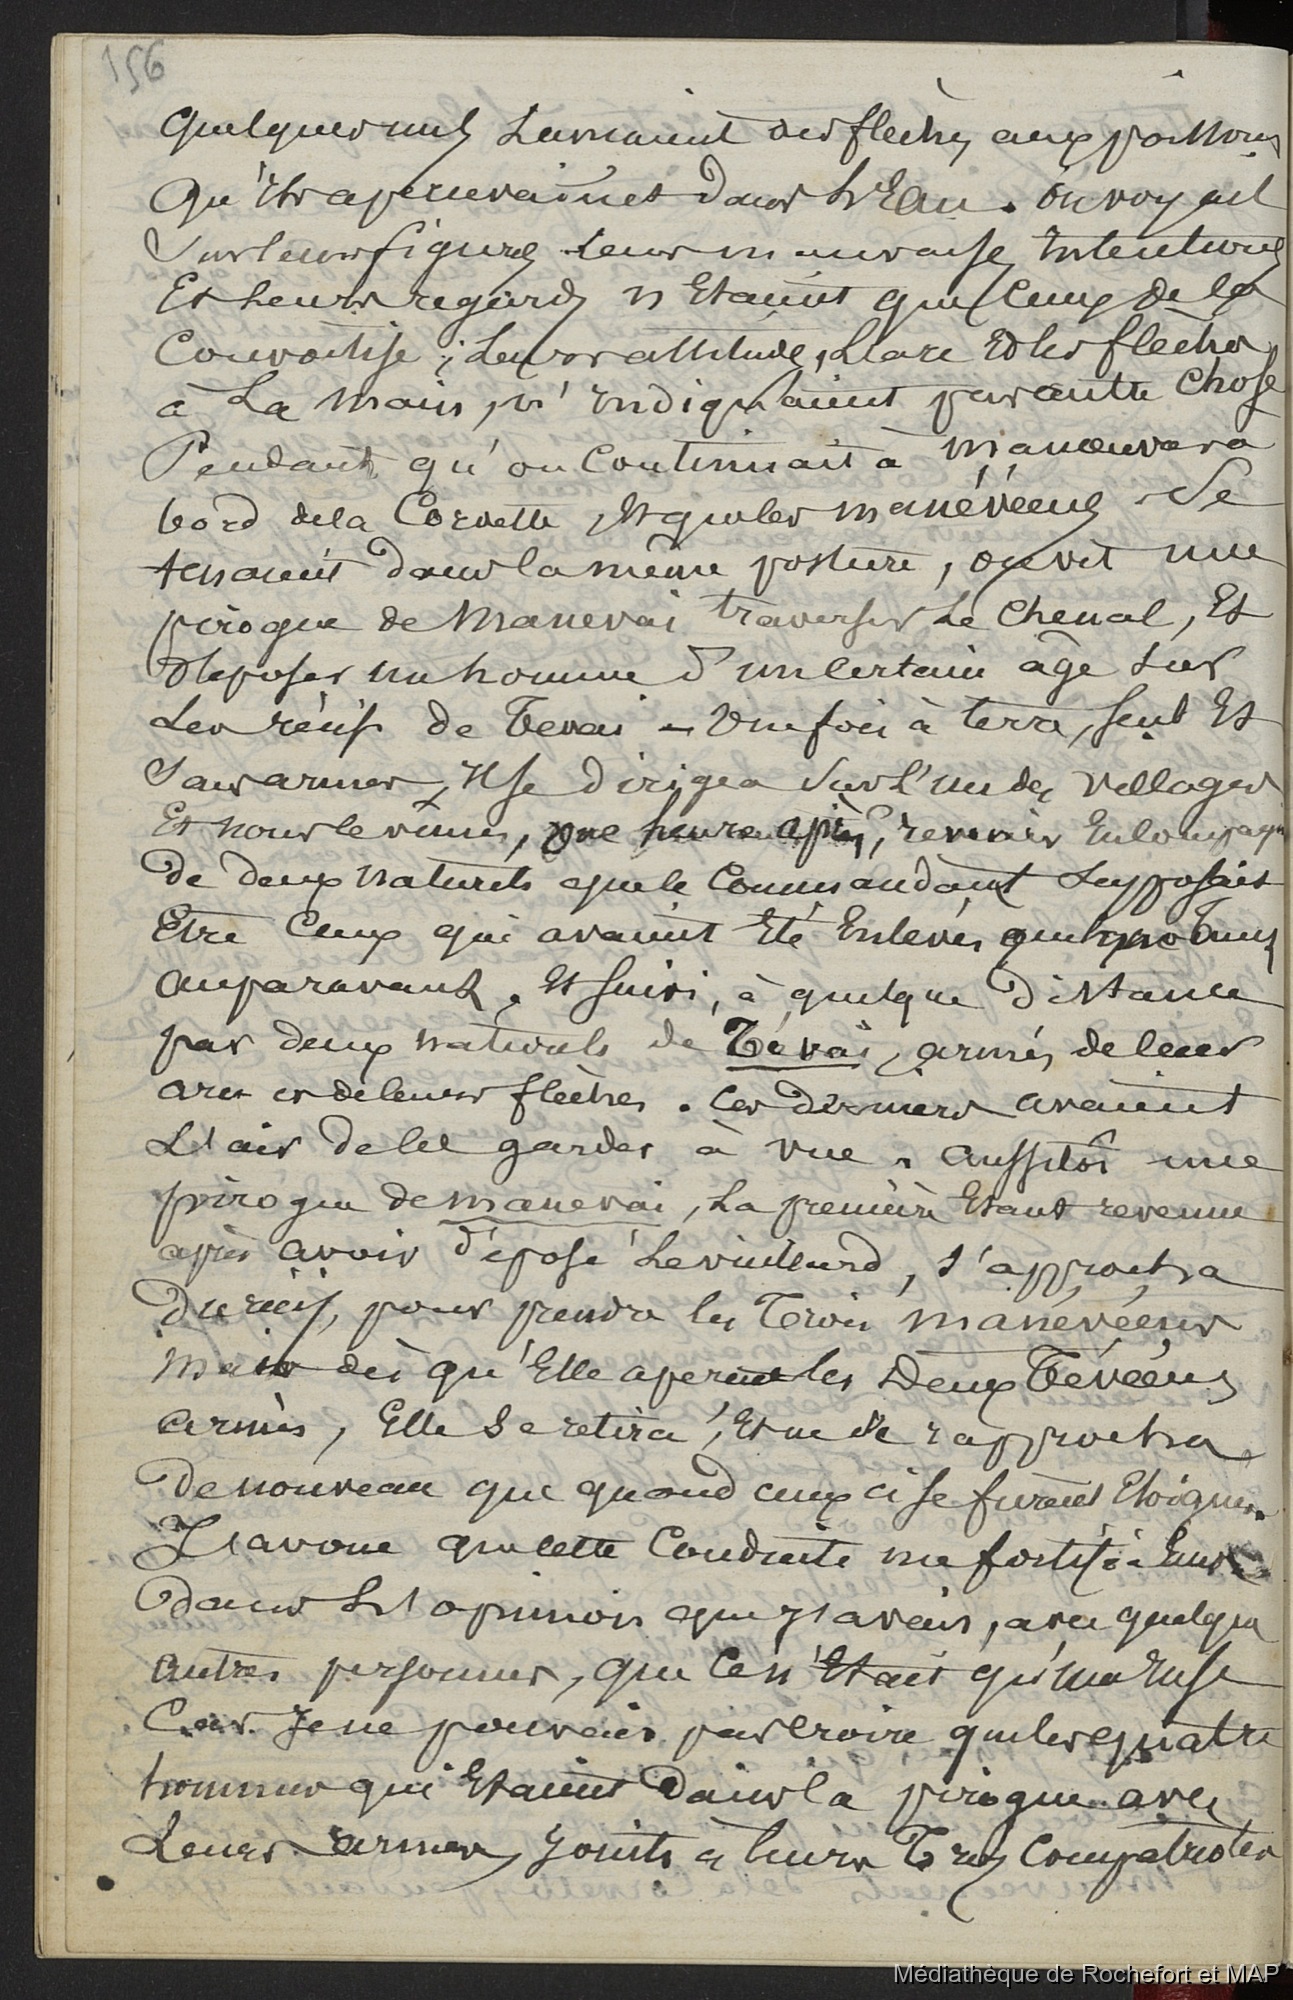 156
quelques uns lançaient des flèches aux poissons
qu'ils apercevaient dans l'Eau. on voyait
sur leurs figures leurs mauvaises intentions
Et leurs regards n'Etaient que ceux de la
Convoitise ; Leurs attitude, L'arc Et les flèches
à La main, n'indiquaient pas autre chose
Pendant qu'on Continuait à manœuvrer à
bord de la Corvette, Et que les manévéens se
tenaient dans la même posture, on vit une
pirogue de Manevai traverser Le chenal, Et
déposer un homme d'un certain âge sur
Les récifs de Tevai – Une fois à terre, seul Et
sans armes, Il se dirigea sur l'un des villages
Et nous le vimes, une heure après, revenir En Compagnie
de deux naturels que le Commandant supposait
Etre Ceux qui avaient Eté Enlevés quelque tems
auparavant, Et suivi, à quelque distance
par deux naturels de Tévai, armés de leurs
arcs et de leurs flèches. Ces derniers avaient
L'air de les garder à vue. aussitôt une
pirogue de manevai, La première Etant revenue
après avoir déposé Le vieillard, s'approcha
du récif, pour prendre les Trois manévéens
mais dès qu'Elle aperçut les Deux Tévéens
armés, Elle se retira, Et ne se rapprocha
de nouveau que quand ceux ci se furent Eloignés.
J'avoue que cette Conduite me fortifia Encore
dans L'opinion que j'avais, avec quelques
autres personnes, que ce n'Etait qu'une ruse
Car Je ne pouvais pas croire que les quatre
hommes qui Etaient dans la pirogue avec
Leurs armes, joints à leurs Trois Compatriotes
Médiathèque de Rochefort et MAP